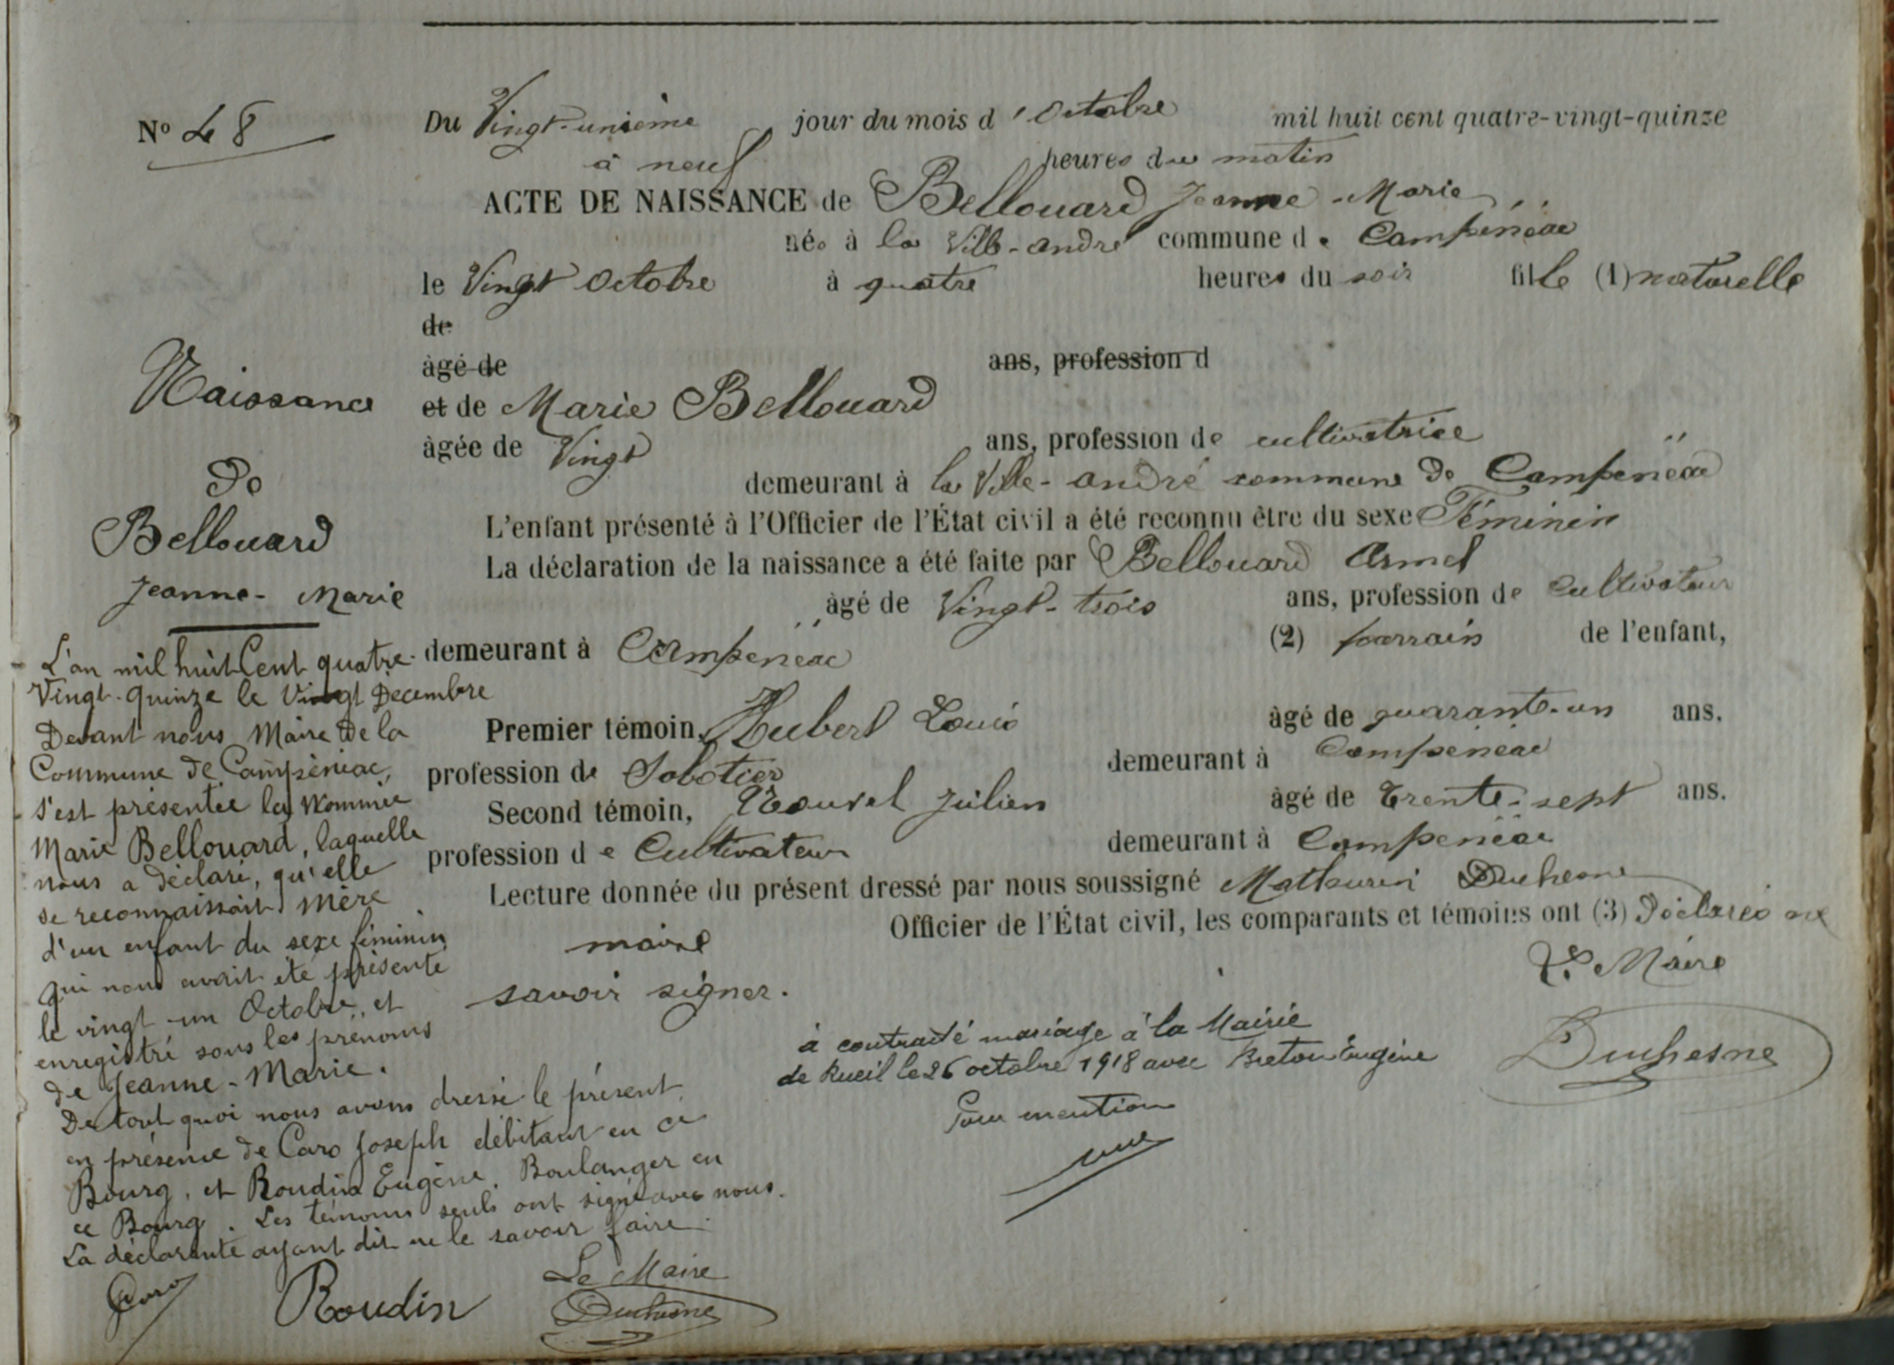 N° 48
Du Vingt-unième jour du mois d'Octobre mil huit cent quatre-vingt-quinze
à neuf heures du matin
ACTE DE NAISSANCE de Bellouard Jeanne-Marie
née à la Ville-andré commune de Campénéac
le Vingt Octobre à quatre heures du soir fille (1) naturelle
de
âgé de ans, profession d
et de Marie Bellouard
âgée de Vingt ans, profession de cultivatrice
demeurant à la Ville-andré commune de Campenéac
L'enfant présenté à l'Officier de l'État civil a été reconnu être du sexe Féminin
La déclaration de la naissance a été faite par Bellouard Armel
âgé de Vingt-trois ans, profession de Cultivateur
demeurant à Campenéac (2) parrain de l'enfant,
Premier témoin, Hubert Louis âgé de quarante-un ans.
profession de Sabotier demeurant à Campénéac
Second témoin, Nouvel Julien âgé de Trente-sept ans.
profession de Cultivateur demeurant à Campenéac
Lecture donnée du présent dressé par nous soussigné Mathurin Duchesne
maire Officier de l'État civil, les comparants et témoins ont (3) Déclarés ne
savoir signer.
Le Maire
Duchesne
Naissance
De
Bellouard
Jeanne-Marie
L'an mil huit Cent quatre-
Vingt-quinze le Vingt Décembre
Devant nous Maire de la
Commune de Campénéac,
s'est présentée la Nommée
Marie Bellouard, laquelle
nous a déclaré, qu'elle
se reconnaissait Mère
d'un enfant du sexe féminin
qui nous avait été présenté
le vingt-un Octobre, et
enregistré sous les prénoms
de Jeanne-Marie.
De tout quoi nous avons dressé le présent
en présence de Caro Joseph débitant en ce
Bourg, et Roudin Eugène, Boulanger en
ce Bourg. Les témoins seuls ont signé avec nous.
La déclarante ayant dit ne le savoir faire.
Caro Roudin Le Maire
Duchesne
à contracté mariage à la Mairie
de Rueil le 26 octobre 1918 avec Breton Eugène
Pour mention